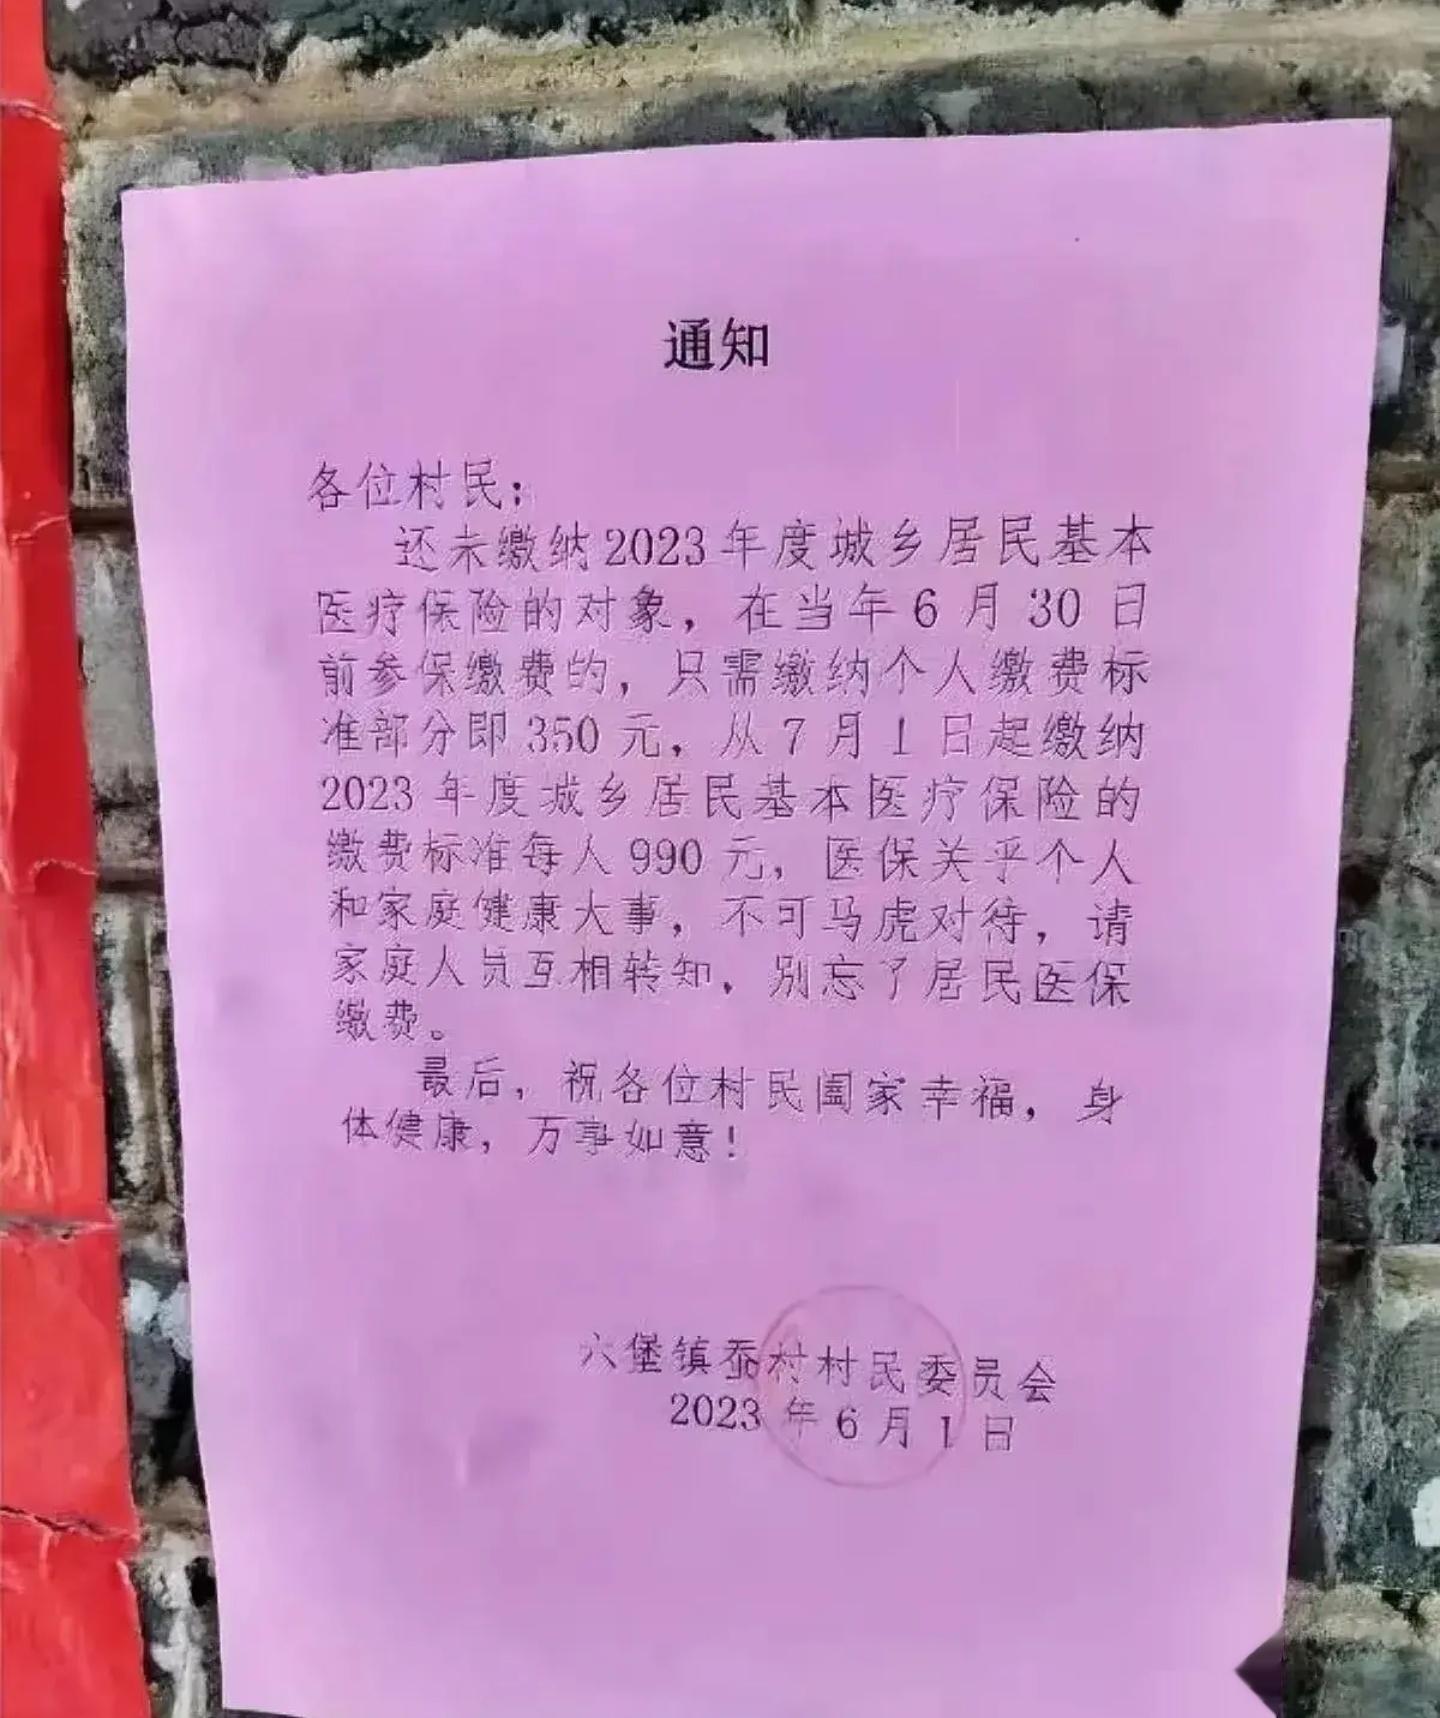 通知
各位村民：
还未缴纳2023年度城乡居民基本
医疗保险的对象，在当年6月30日
前参保缴费的，只需缴纳个人缴费标
准部分即350元，从7月1日起缴纳
2023年度城乡居民基本医疗保险的
缴费标准每人990元，医保关乎个人
和家庭健康大事，不可马虎对待，请
家庭人员互相转知，别忘了居民医保
缴费。
最后，祝各位村民阖家幸福，身
体健康，万事如意！
六堡镇村村民委员会
2023年6月1日